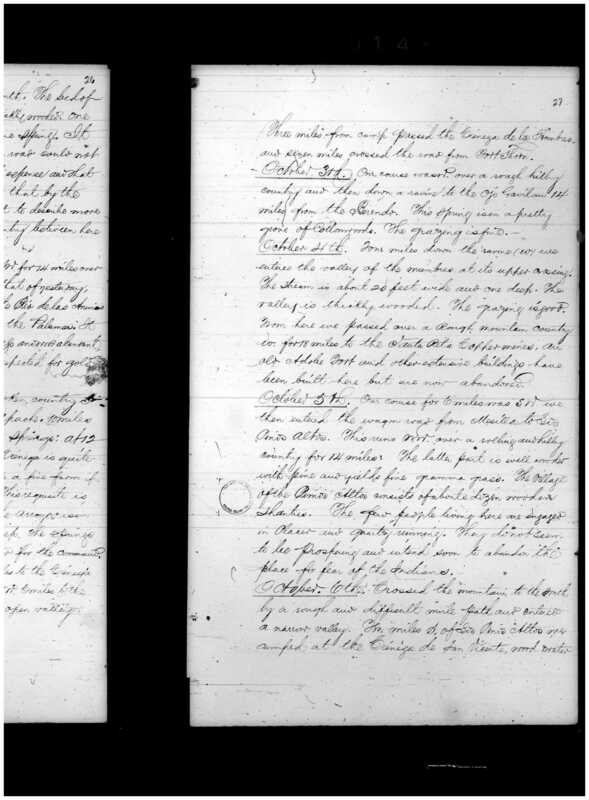 26
uth. The bed of
wooded. One
spring. It
road would not
expense and that
that by the
t to describe more
try between here
is
for 14 miles over
that of yesterday.
Rio de las
the Palomas. It
abundant
for gold
country
miles
Springs: at 12
Cienega is quite
a fine farm if
requisite is
The Springs
for the command.
to the Cienega
6 miles to the
open valley.
27
Three miles from camp passed the Cienega de los
and seven miles crossed the road from Fort Thorn.
October 3rd. Our course was over a rough hilly
country and then down a ravine to the Ojo Gavilan 14
miles from the Berendo. This Spring is in a pretty
grove of Cottonwoods. The grazing is fine.
October 4th. Four miles down the ravine (W) we
entered the valley of the Mimbres at its upper crossing.
The Stream is about 20 feet wide and one deep. The
valley is thickly wooded. The grazing is good.
From here we passed over a Rough mountain country
W. for 18 miles to the Santa Rita Copper mines. An
old Adobe Fort and other extensive buildings have
been built here but are now abandoned.
October 5th. Our course for 6 miles was S W we
then entered the wagon road from Mesilla to
Pinos Altos. This runs over a rolling and hilly
country for 14 miles: The latter part is well wooded
with pine and yields fine gramma grass. The Village
of the Pinos Altos consists of about a dozen wooden
Shanties. The few people living here are engaged
in Placer and quartz mining. They do not seem
to be prospering and intend soon to abandon the
place for fear of the Indians.
October 6th. Crossed the mountain to the South
by a rough and difficult mule path and entered
a narrow valley. Ten miles S. of Pinos Altos we
camped at the Cienega de San Vicente, wood water